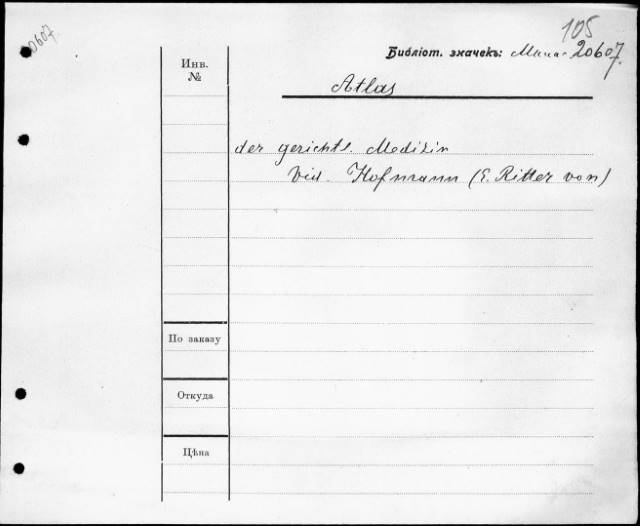 20607.
105
Библіот. значекъ: 20607.
Инв.
№
Atlas
der gerichtl. Medizin
Vid. Hofmann (E. Ritter von)
По заказу
Откуда
Цѣна